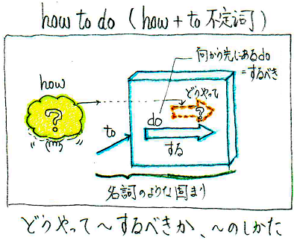 how to do (how + to 不定詞)
向から先にあるdo
=するべき
how
どうやって
?
?
do
to
する
名詞のような固まり
どうやって〜するべきか、〜のしかた